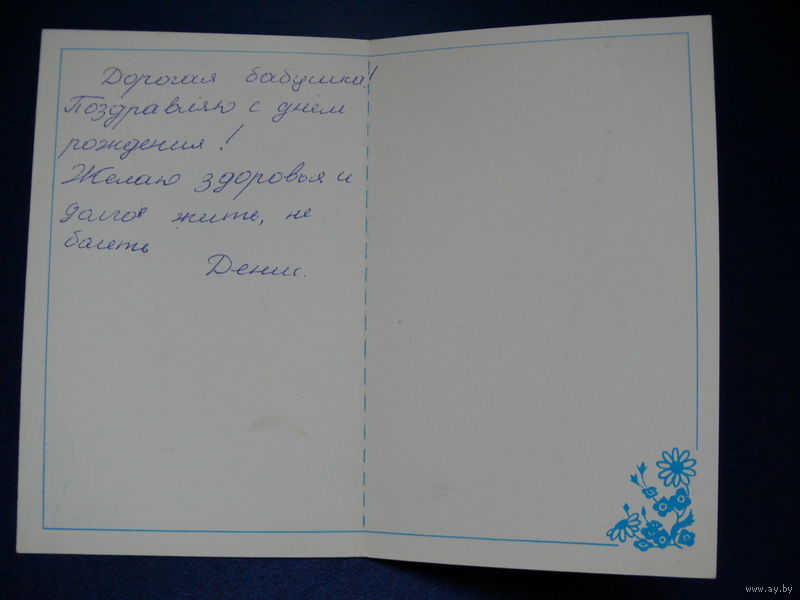 Дорогая бабушка!
Поздравляю с днём
рождения!
Желаю здоровья и
долго жить, не
балеть
Денис.
www.ay.by